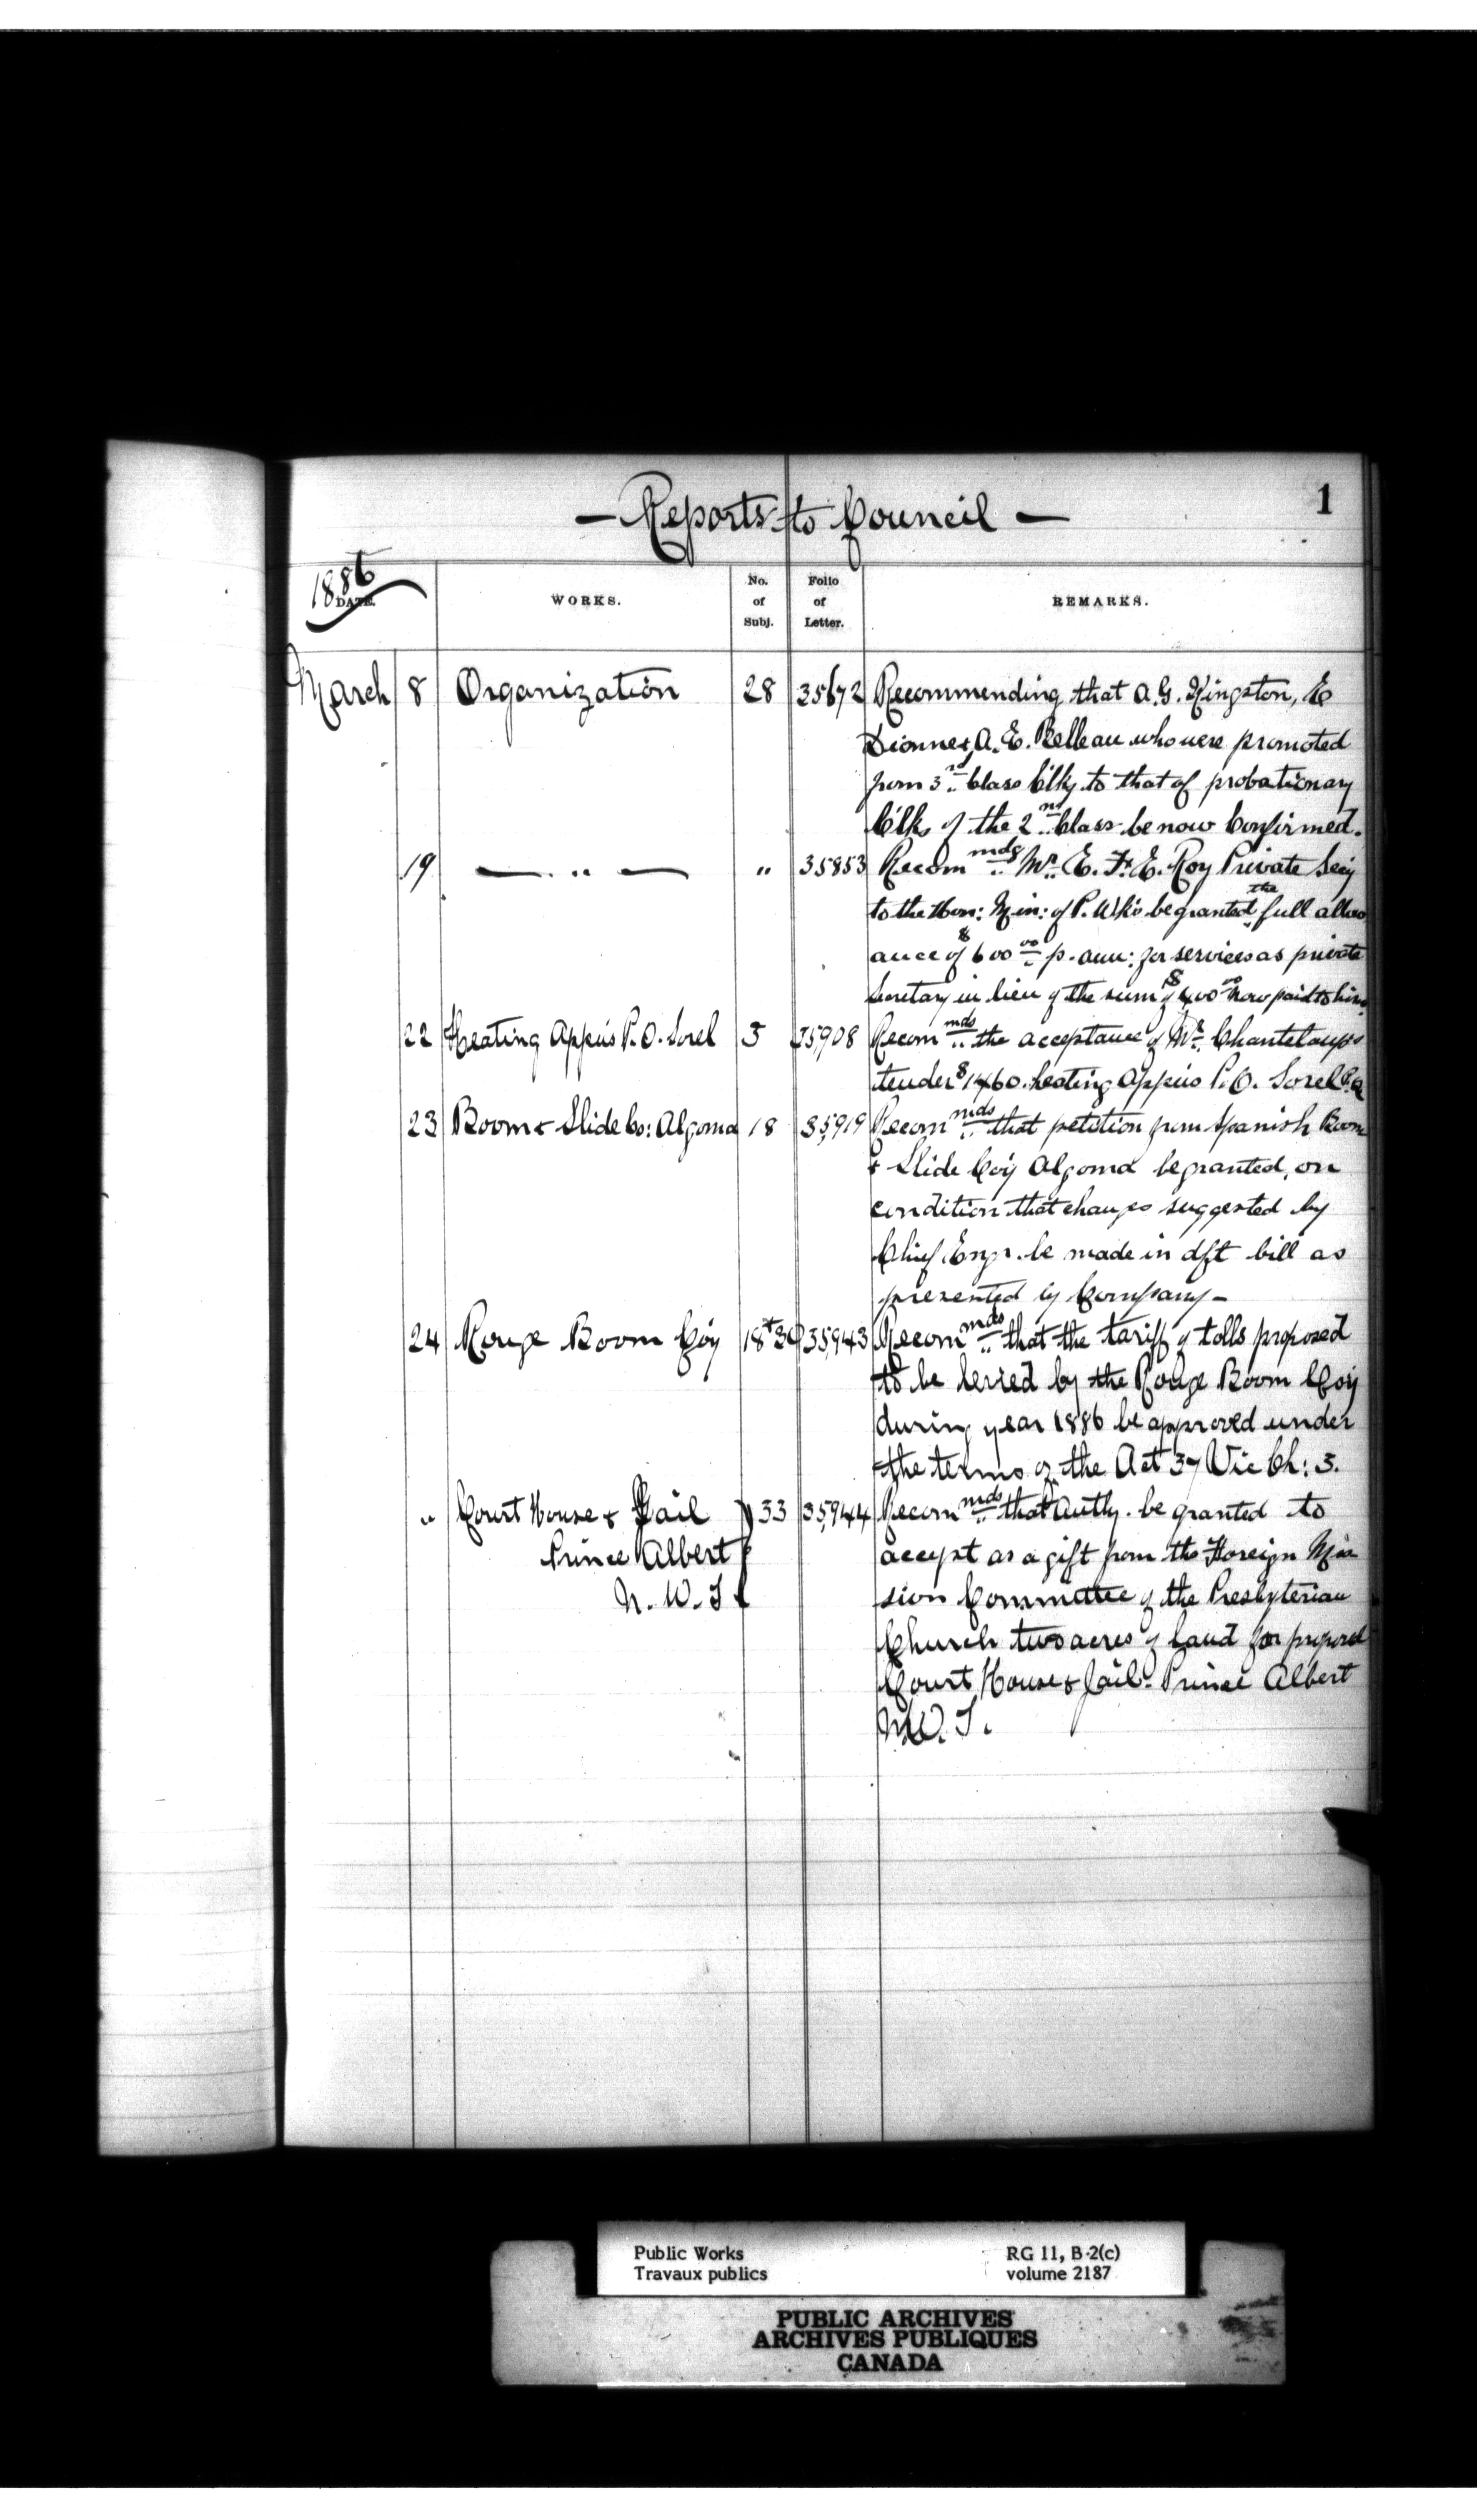 — Reports to Council —
1
1886
DATE. WORKS. No. of Subj. Folio of Letter. REMARKS.
March 8 Organization 28 35672 Recommending that A. G. Kingston, E
Dionne & A. E. Belleau who were promoted
from 3rd Class Clks to that of probationary
Clks of the 2nd Class be now Confirmed.
19 — " — " 35853 Recommds Mr. E. F. E. Roy Private Secy
to the Hon: Min: of P. Wks be granted the full allow
ance of $600 00 p. ann: for services as private
Secretary in lieu of the sum of $400 00 now paid to him
22 Heating Appus P. O. Sorel 3 35,908 Recommds the acceptance of Mr. Chanteloups
tender $1460. heating appus P. O. Sorel P.Q
23 Boom & Slide Co: Algoma 18 35,919 Recommds that petition from Spanish Boom
& Slide Coy Algoma be granted, on
condition that changes suggested by
Chief Engr. be made in dft bill as
presented by Company —
24 Rouge Boom Coy 18 + 30 35,943 Recommds that the tariff of tolls proposed
to be levied by the Rouge Boom Coy
during year 1886 be approved under
the terms of the Act 37 Vic Ch: 3.
" Court House & Jail 33 35,944 Recommds that Authy. be granted to
Prince Albert accept as a gift from the Foreign Mis
N. W. T. sion Committee of the Presbyterian
Church two acres of land for proposed
Court House & Jail - Prince Albert
N.W. T.
Public Works RG 11, B-2(c)
Travaux publics volume 2187
PUBLIC ARCHIVES
ARCHIVES PUBLIQUES
CANADA